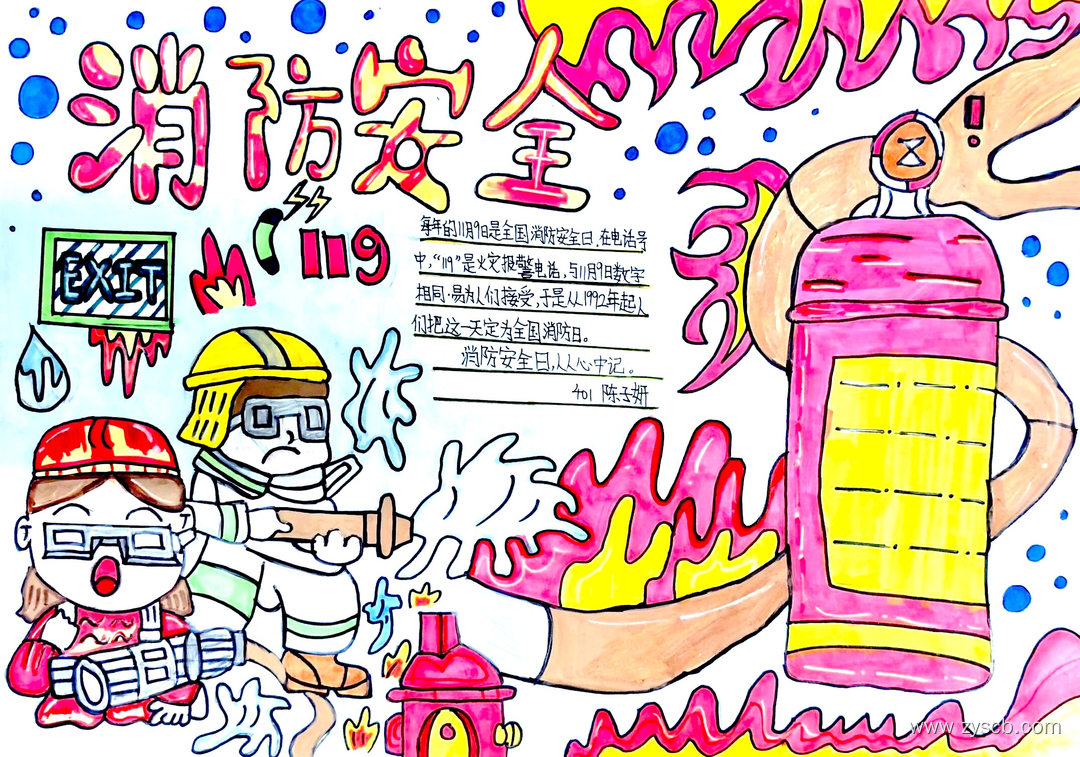 消防安全
119
EXIT
每年的11月9日是全国消防安全日,在电话号
中,“119”是火灾报警电话,与11月9日数字
相同,易为人们接受,于是从1992年起人
们把这一天定为全国消防日。
消防安全日,人人心中记。
401 陈子妍
!
www.zyscb.com